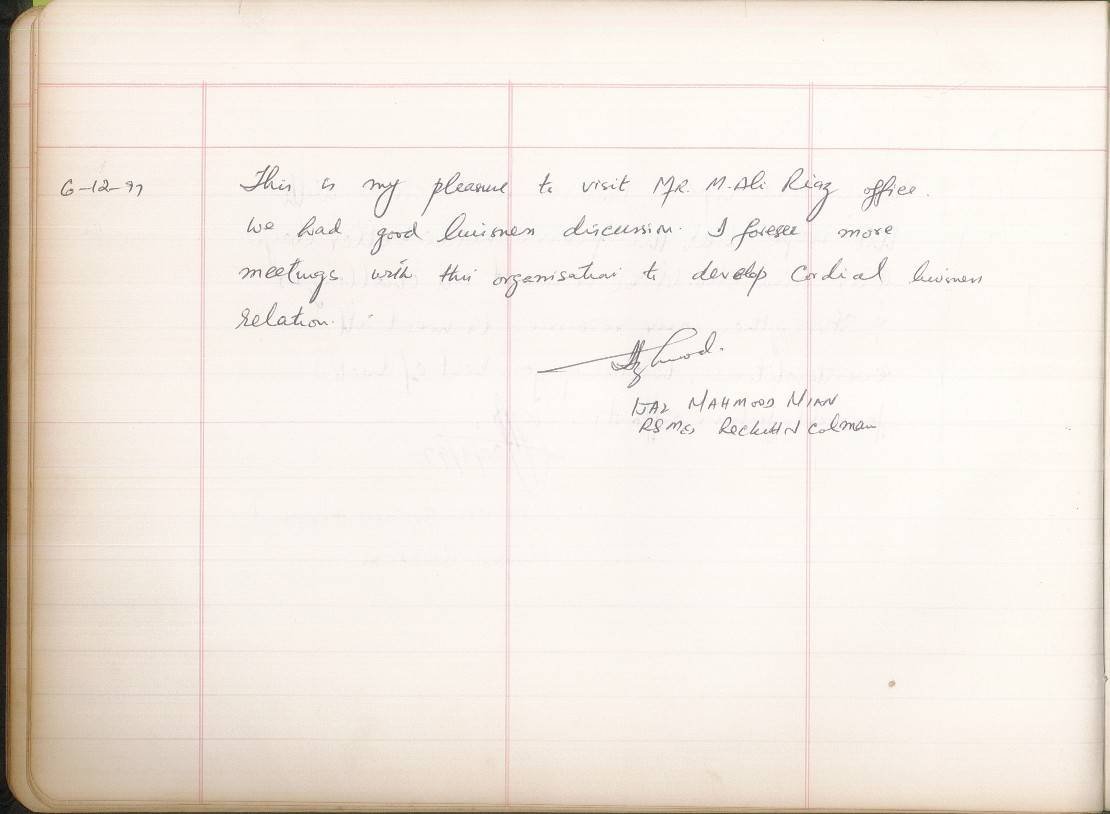 6-12-97
This is my pleasure to visit MR. M. Ali Riaz office.
We had good business discussion. I foresee more
meetings with this organisation to develop Cordial business
relation.
IJAZ MAHMOOD MIAN
Reckitt N Colman